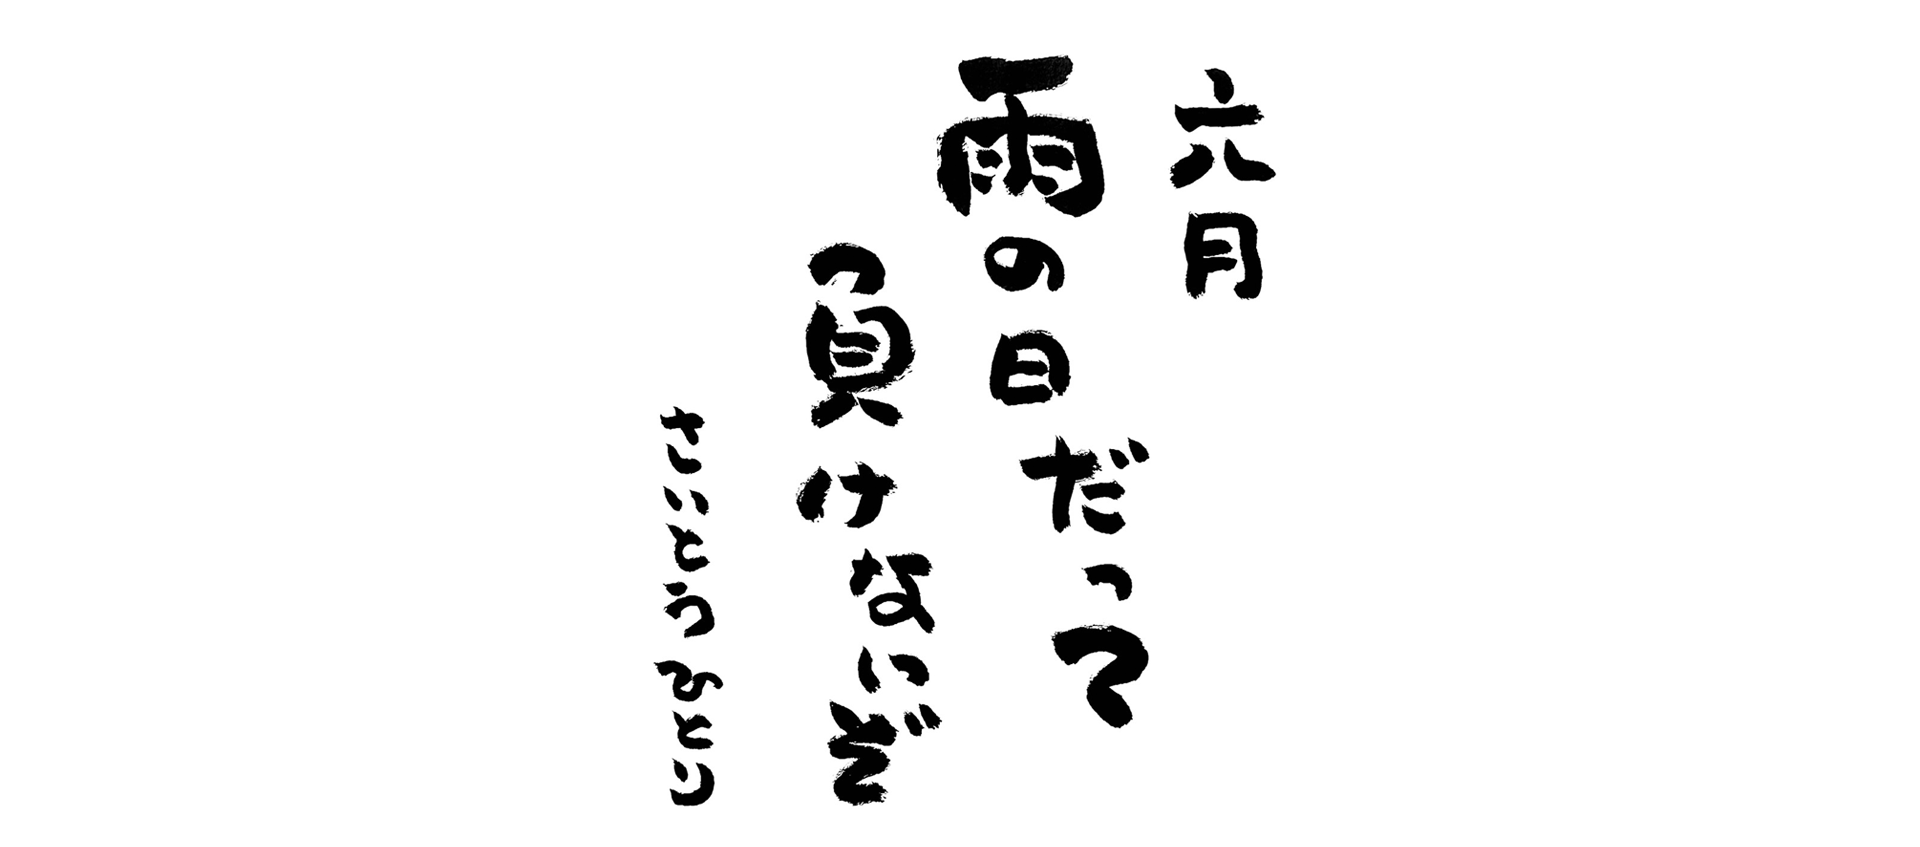 六月
雨の日だって
負けないぞ
さいとうひとり